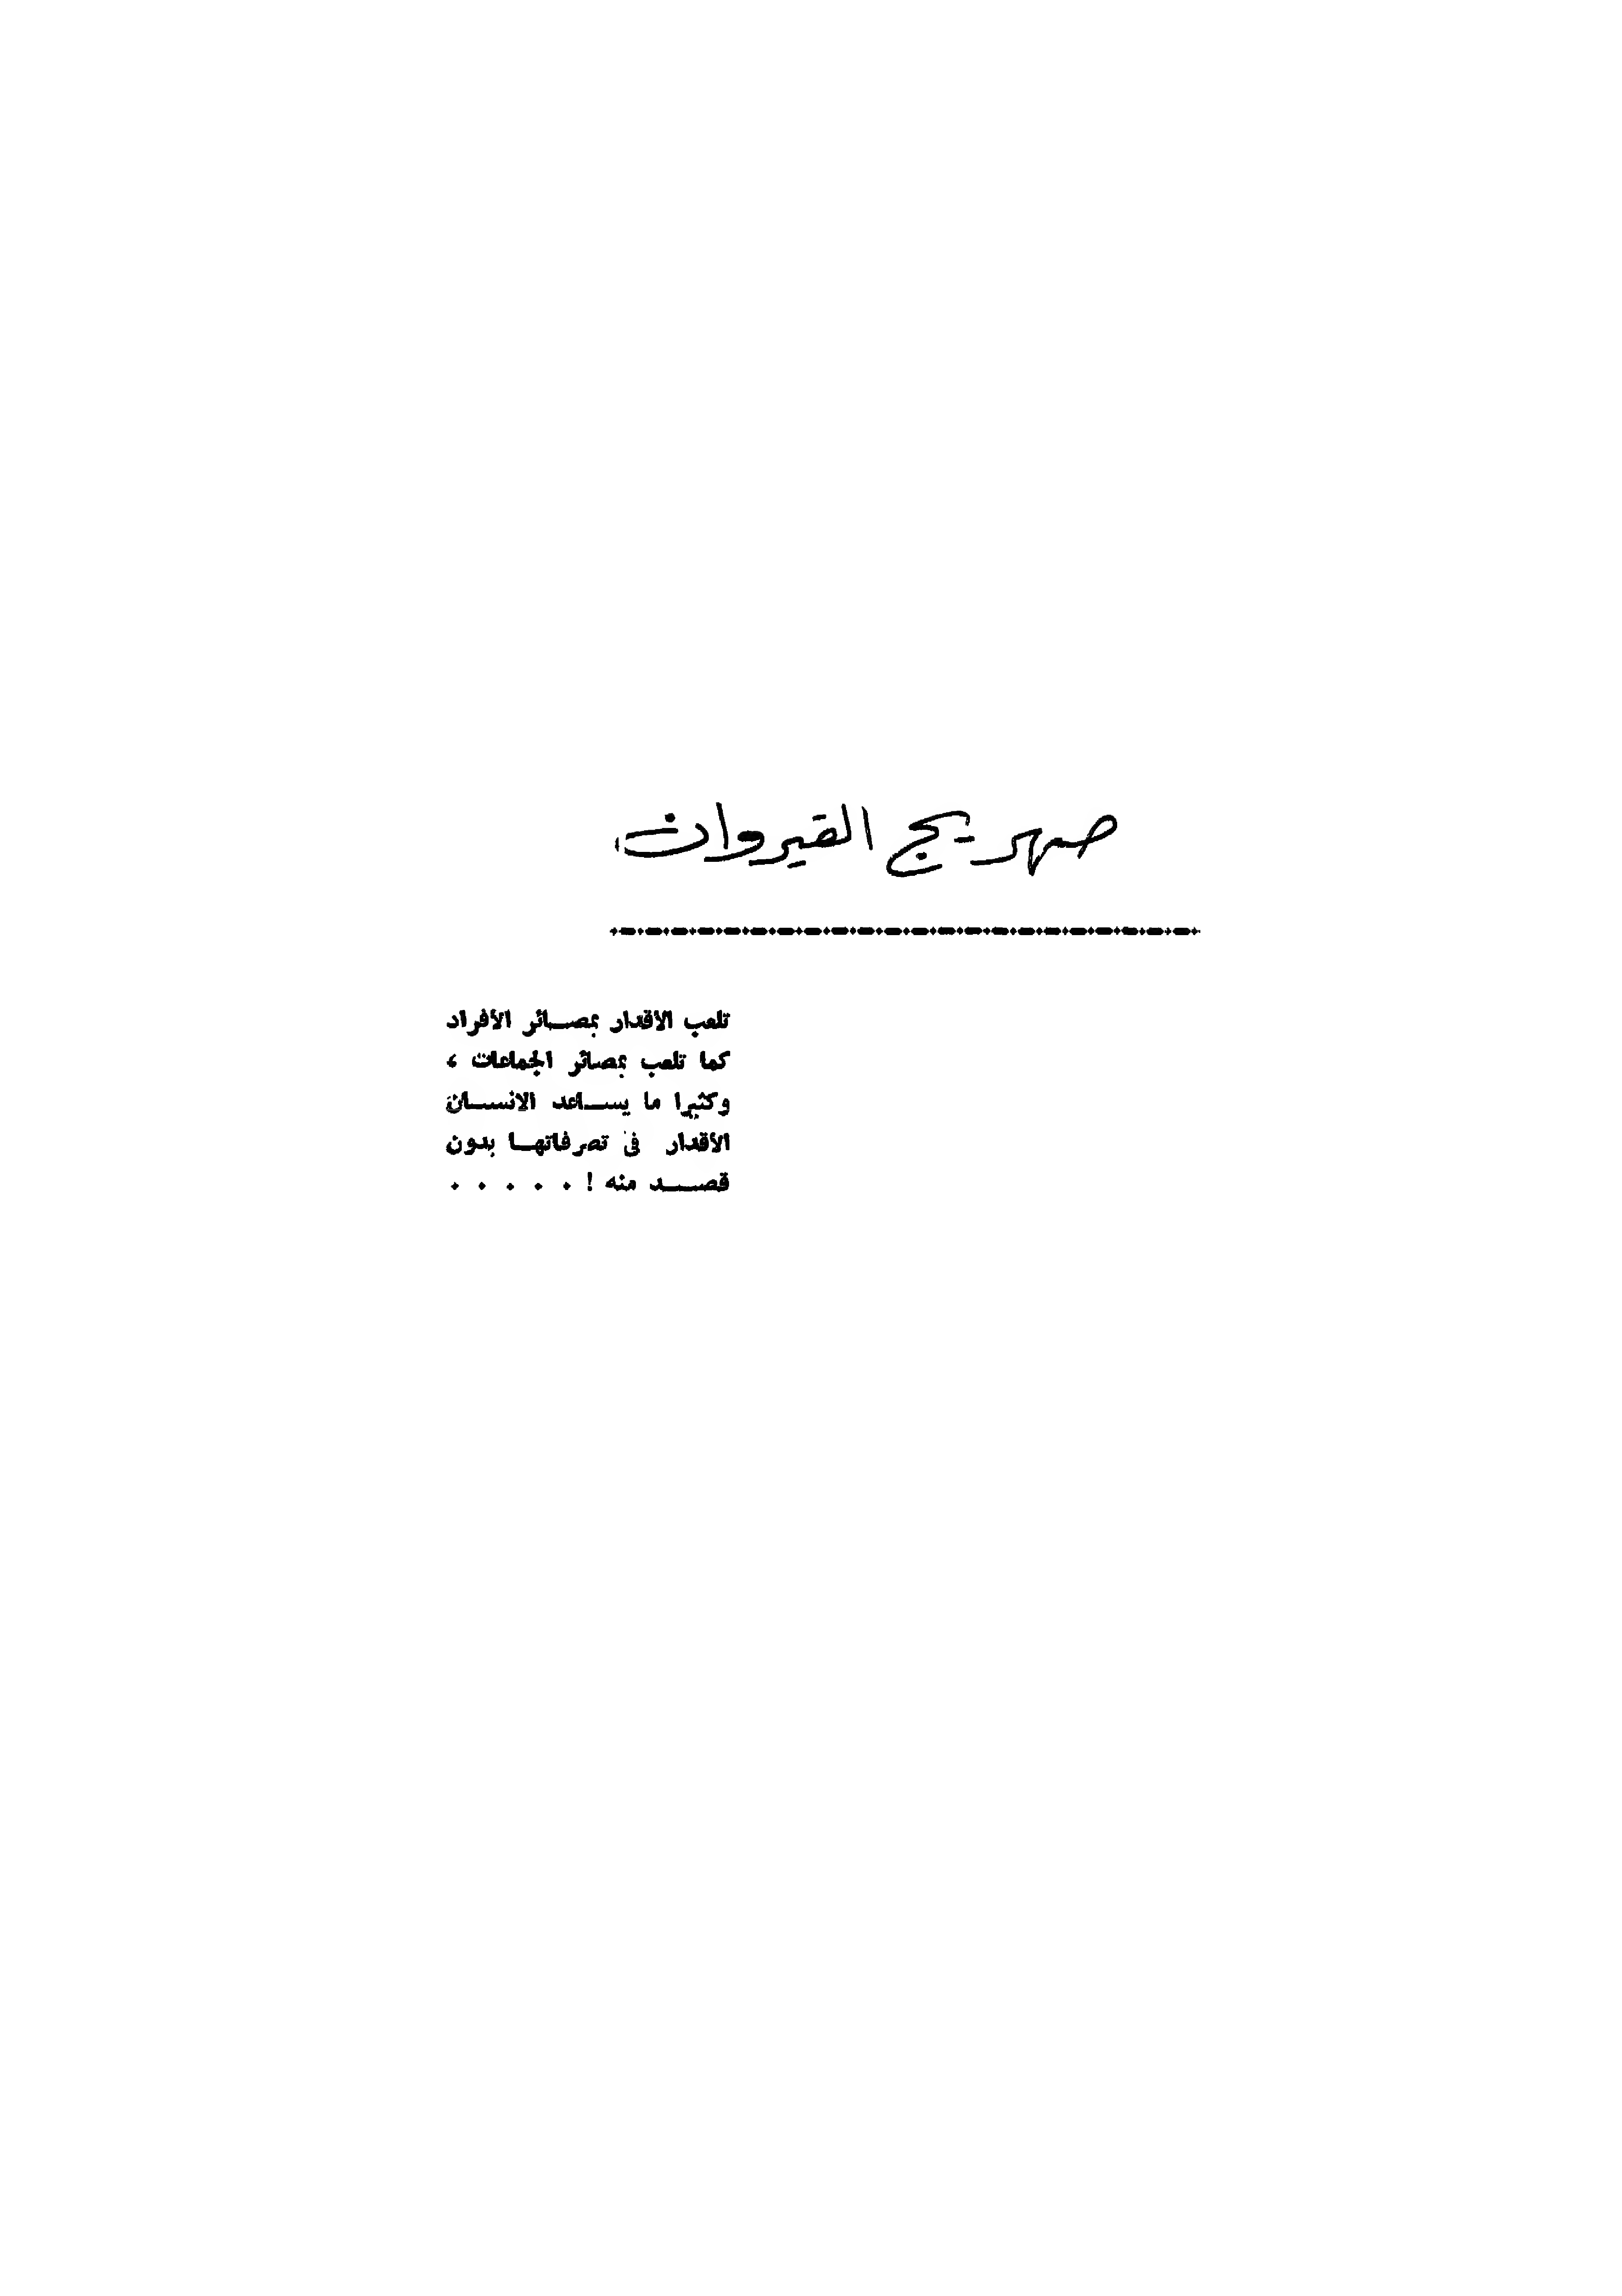 صهريج القيروان
تلعب الأقدار بمصائر الأفراد
كما تلعب بمصائر الجماعات ،
وكثيرا ما يساعد الانسان
الأقدار في تصرفاتها بدون
قصد منه ! . . . . .